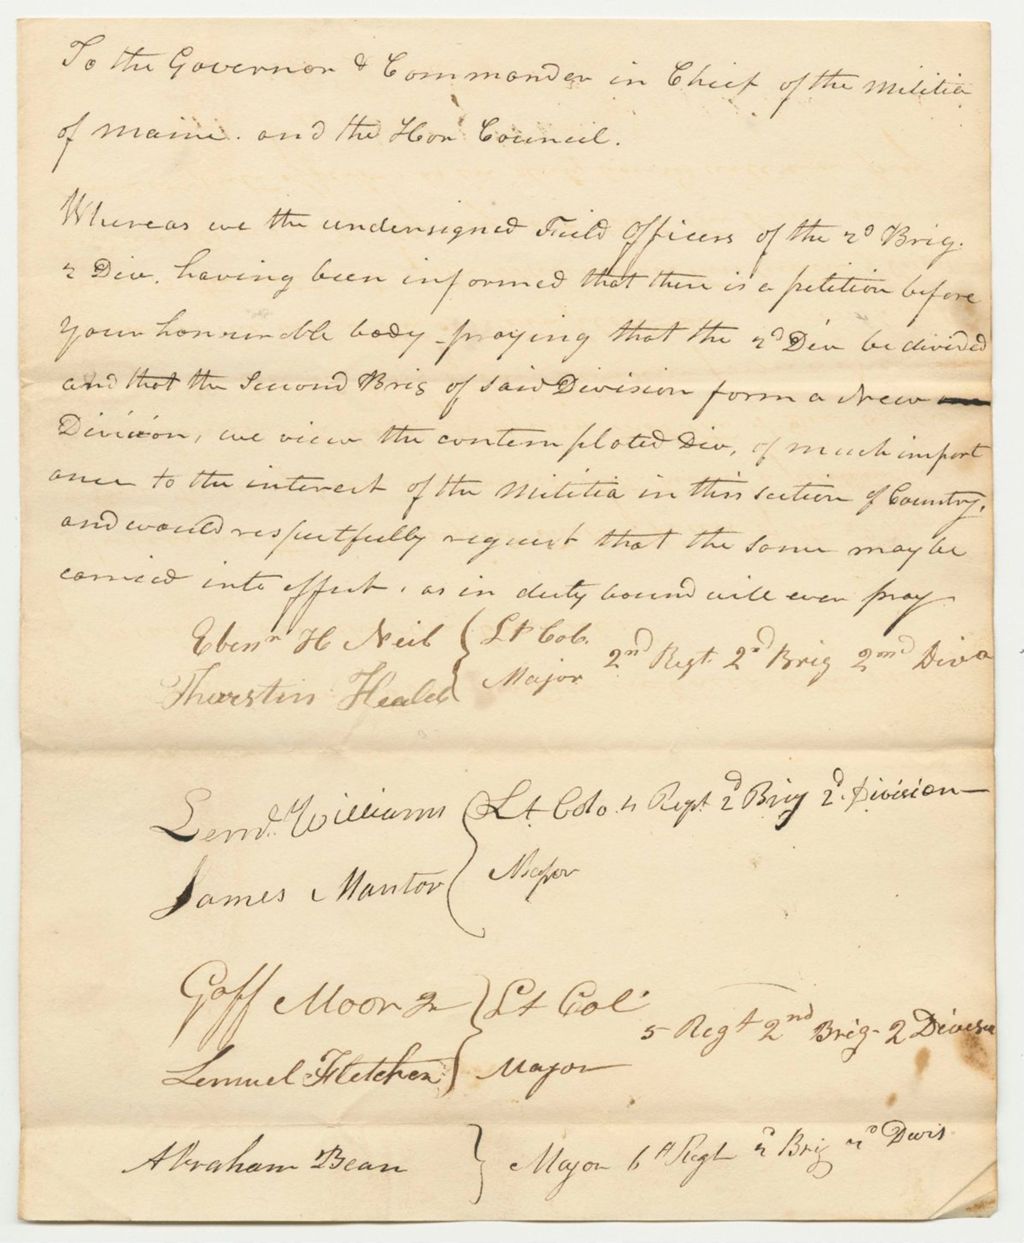 To the Governor & Commander in Chief of the Militia
of Maine. and the Hon Council.
Whereas we the undersigned Field Officers of the 2d Brig.
2 Div. having been informed that there is a petition before
your honourable body praying that the 2d Div be divided
and that the Second Brig of said Division form a New
Division, we view the contemplated Div, of much import
ance to the interest of the Militia in this section of Country,
and would respectfully request that the same may be
carried into effect, as in duty bound will ever pray
Ebenr H Neil { Lt Col. 2nd Regt 2d Brig 2nd Divn
Thurstin Heald { Major
Leml. Williams { Lt Colo 4 Regt 2d Brig 2d. Division
James Mantor { Major
Goff Moor 2 } Lt Col. 5 Regt 2nd Brig- 2 Divisn
Lemuel Fletcher } Major
Abraham Bean } Major 6th Regt 2d Brig 2d Divis